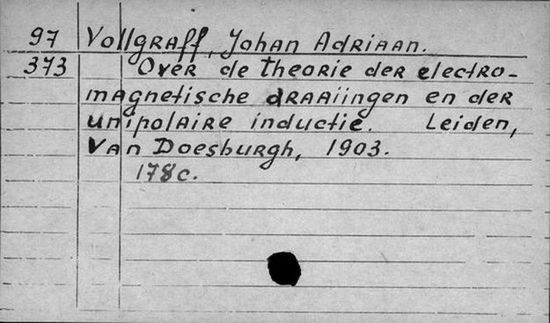 97 Vollgraff, Johan Adriaan.
373 Over de theorie der electro-
magnetische draaiingen en der
unipolaire inductie. Leiden,
Van Doesburgh, 1903.
178c.